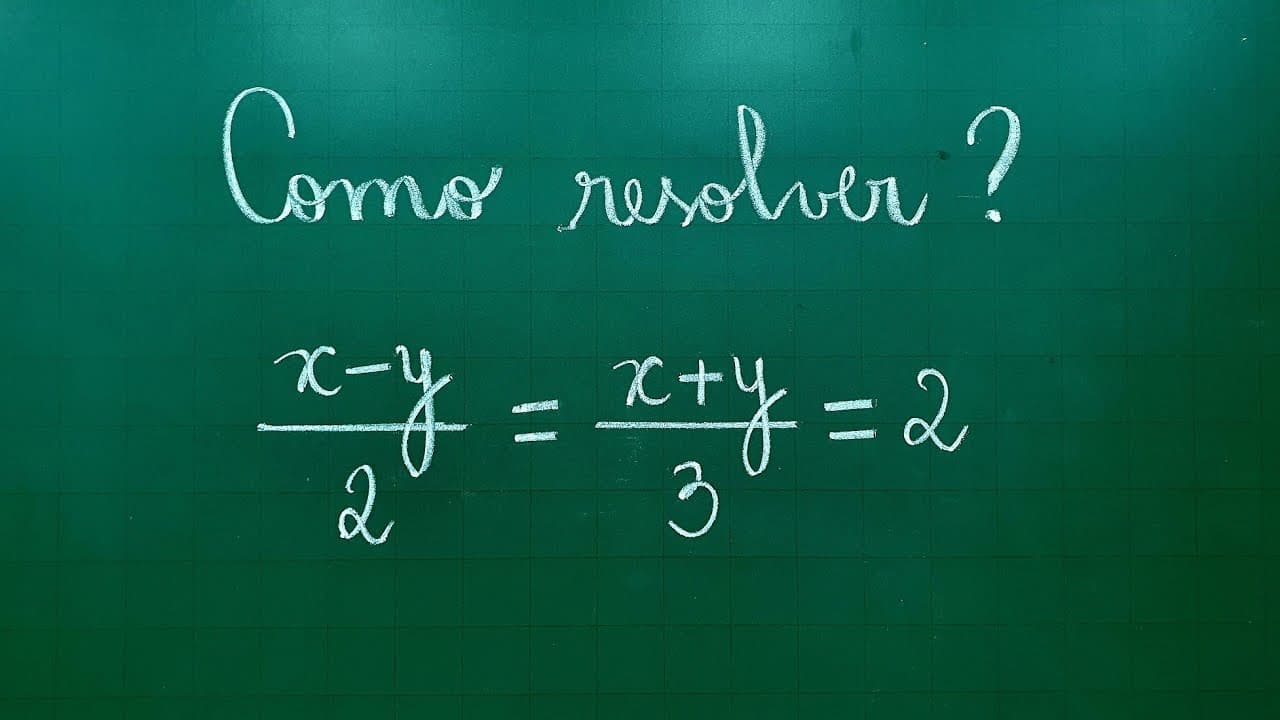 Como resolver?
x-y/2 = x+y/3 = 2